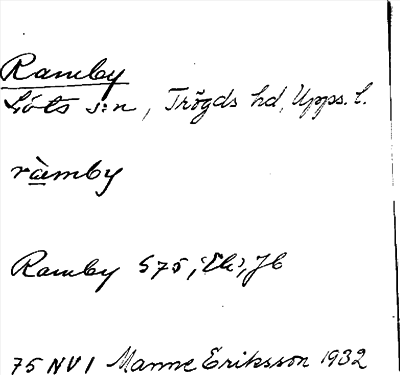 Ramby
Löts s:n, Trögds hd, Upps. l.
ràmby
Ramby S75, Ek, Jb
75 NV 1 Manne Eriksson 1932